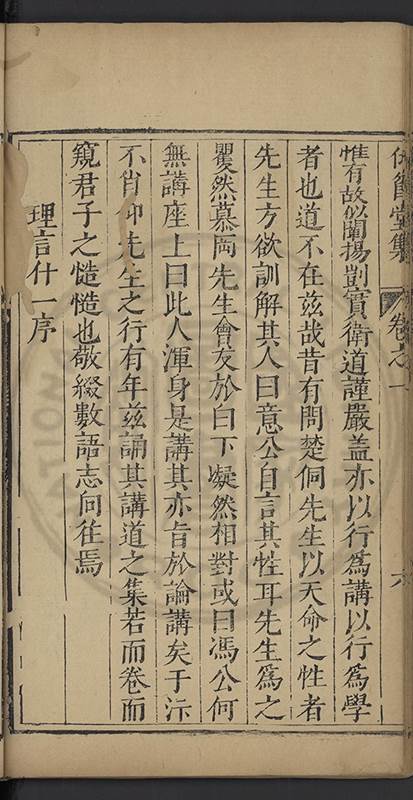 仰節堂集 卷之一 六
惟有故似闡揚剴實衛道謹嚴蓋亦以行爲講以行爲學
者也道不在兹哉昔有問楚侗先生以天命之性者
先生方欲訓解其人曰意公自言其性耳先生爲之
矍然慕岡先生會友於白下凝然相對或曰馮公何
無講座上曰此人渾身是講其亦旨於論講矣于汴
不肖仰先生之行有年兹誦其講道之集若而卷而
窺君子之慥慥也敬綴數語志向往焉
理言什一序